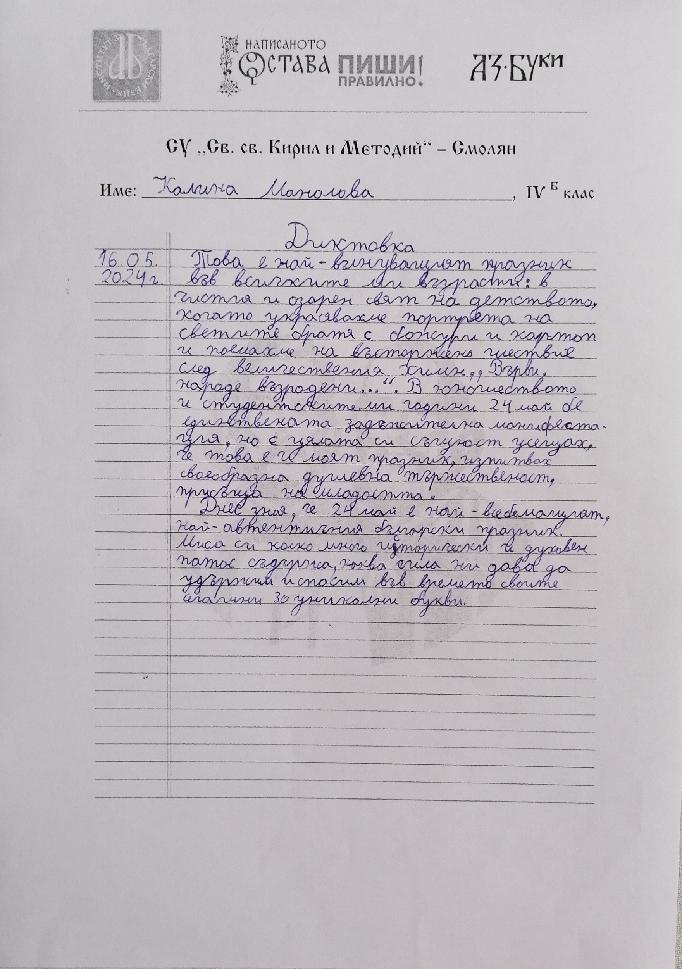 НАПИСАНОТО
ОСТАВА ПИШИ
ПРАВИЛНО!
АЗ·БУКИ
СУ „Св. св. Кирил и Методий“ – Смолян
Име: Калина Манолова, IV Б клас
Диктовка
16.05. Това е най-вълнуващият празник
2024г. във всичките ми възрасти: в
чистия и озарен свят на детството,
когато украсявахме портрета на
светите братя с божури и картоп
и поемахме на възторжено шествие
след величествения химн „Върви,
народе възродени...“. В юношеството
и студентските ми години 24 май бе
единствената задължителна манифеста-
ция, но с цялата си същност усещах,
че това е и моят празник, изпитвах
своеобразна душевна тържественост,
присъща на младостта.
Днес зная, че 24 май е най-всебългарският,
най-автентичния български празник.
Мисля си колко много исторически и духовен
патос съдържа, каква сила ни дава да
удържим и спасим във времето своите
уникални букви.